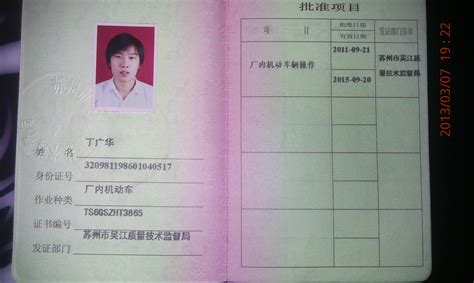 丁广华
姓 名
320981198601040517
身份证号
厂内机动车
作业种类
TS6GSZHT3865
证书编号
苏州市吴江质量技术监督局
发证部门
批准项目
项 目
批准日期
有效日期
发证部门签章
厂内机动车辆操作
2011-09-21
2015-09-20
苏州市吴江质
量技术监督局
2013/03/07 19:22